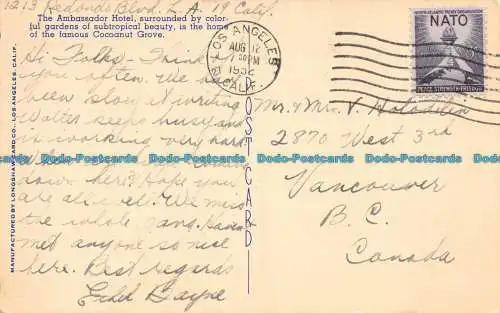 1213 Redondo Blvd. L.A. 19 Calif.
The Ambassador Hotel, surrounded by color-
ful gardens of subtropical beauty, is the home
of the famous Cocoanut Grove.
Hi Folks - Think
you often. We have
been slow at writing
Walter keeps busy and
is working very hard
down here. Hope you
are all well. We miss
the whole gang. Haven't
met anyone so nice
here. Best regards
Ethel Gayne
MANUFACTURED BY LONGSHAW CARD CO., LOS ANGELES, CALIF.
POST CARD
LOS ANGELES
AUG 12
7 30 PM
1952
CALIF.
NORTH ATLANTIC TREATY ORGANIZATION
NATO
PEACE STRENGTH FREEDOM
Mr. & Mrs. V.
2870 West 3rd
Vancouver
B.C.
Canada
Bodo-Postcards Bodo-Postcards Bodo-Postcards Bodo-Postcards